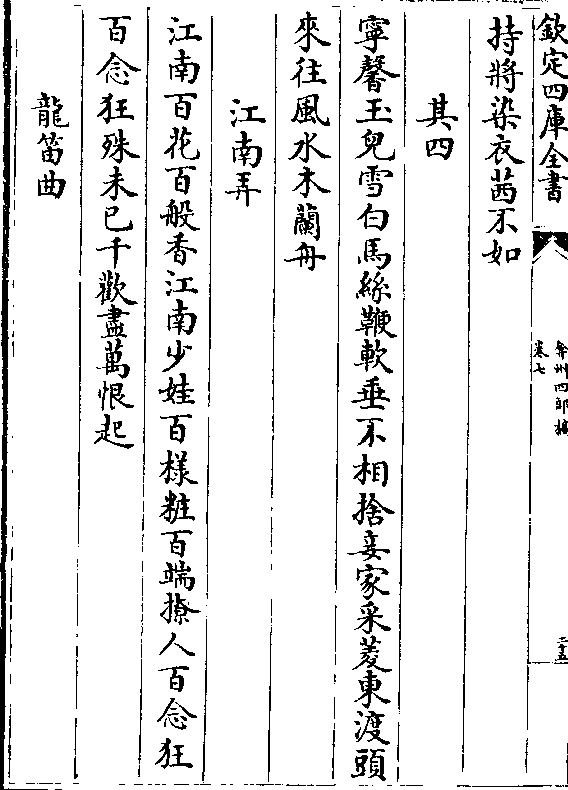 欽定四庫全書
弇州四部稿
卷七
二十五
持將染衣茜不如
其四
寧馨玉兒雪白馬絲鞭軟垂不相捨妾家采菱東渡頭
來往風水木蘭舟
江南弄
江南百花百般香江南少娃百樣粧百端撩人百念狂
百念狂殊未已千歡盡萬恨起
龍笛曲